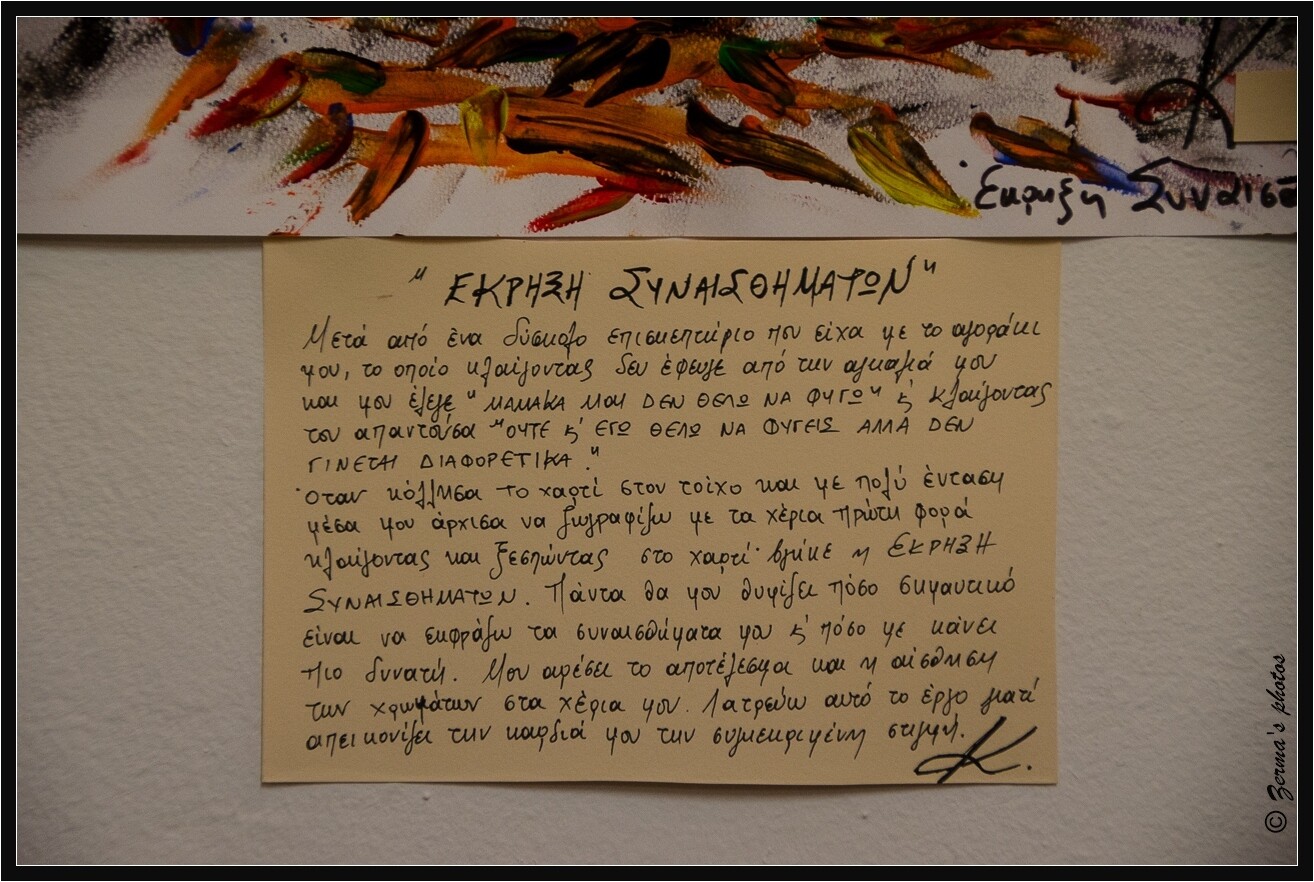 Έκρηξη Συναισθ
" ΕΚΡΗΞΗ ΣΥΝΑΙΣΘΗΜΑΤΩΝ "
Μετά από ένα δύσκολο επισκεπτήριο που είχα με το αγοράκι
μου, το οποίο κλαίγοντας δεν έφευγε από την αγκαλιά μου
και μου έλεγε " ΜΑΜΑΚΑ ΜΟΥ ΔΕΝ ΘΕΛΩ ΝΑ ΦΥΓΩ " κ' κλαίγοντας
του απαντούσα "ΟΥΤΕ κ' ΕΓΩ ΘΕΛΩ ΝΑ ΦΥΓΕΙΣ ΑΛΛΑ ΔΕΝ
ΓΙΝΕΤΑΙ ΔΙΑΦΟΡΕΤΙΚΑ."
Όταν κόλλησα το χαρτί στον τοίχο και με πολύ ένταση
μέσα μου άρχισα να ζωγραφίζω με τα χέρια πρώτη φορά
κλαίγοντας και ξεσπώντας στο χαρτί· βγήκε η ΕΚΡΗΞΗ
ΣΥΝΑΙΣΘΗΜΑΤΩΝ. Πάντα θα μου θυμίζει πόσο σημαντικό
είναι να εκφράζω τα συναισθήματα μου κ' πόσο με κάνει
πιο δυνατή. Μου αρέσει το αποτέλεσμα και η αίσθηση
των χρωμάτων στα χέρια μου. Λατρεύω αυτό το έργο γιατί
απεικονίζει την καρδιά μου την συγκεκριμένη στιγμή.
Κ.
© Zerma's photos